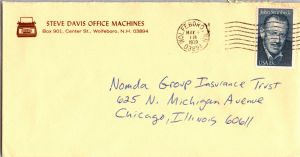 STEVE DAVIS OFFICE MACHINES
Box 901, Center St., Wolfeboro, N.H. 03894
WOLFEBORO, N.H.
MAY
PM
1979
03894
John Steinbeck
USA 15c
Nomda Group Insurance Trust
625 N. Michigan Avenue
Chicago, Illinois 60611